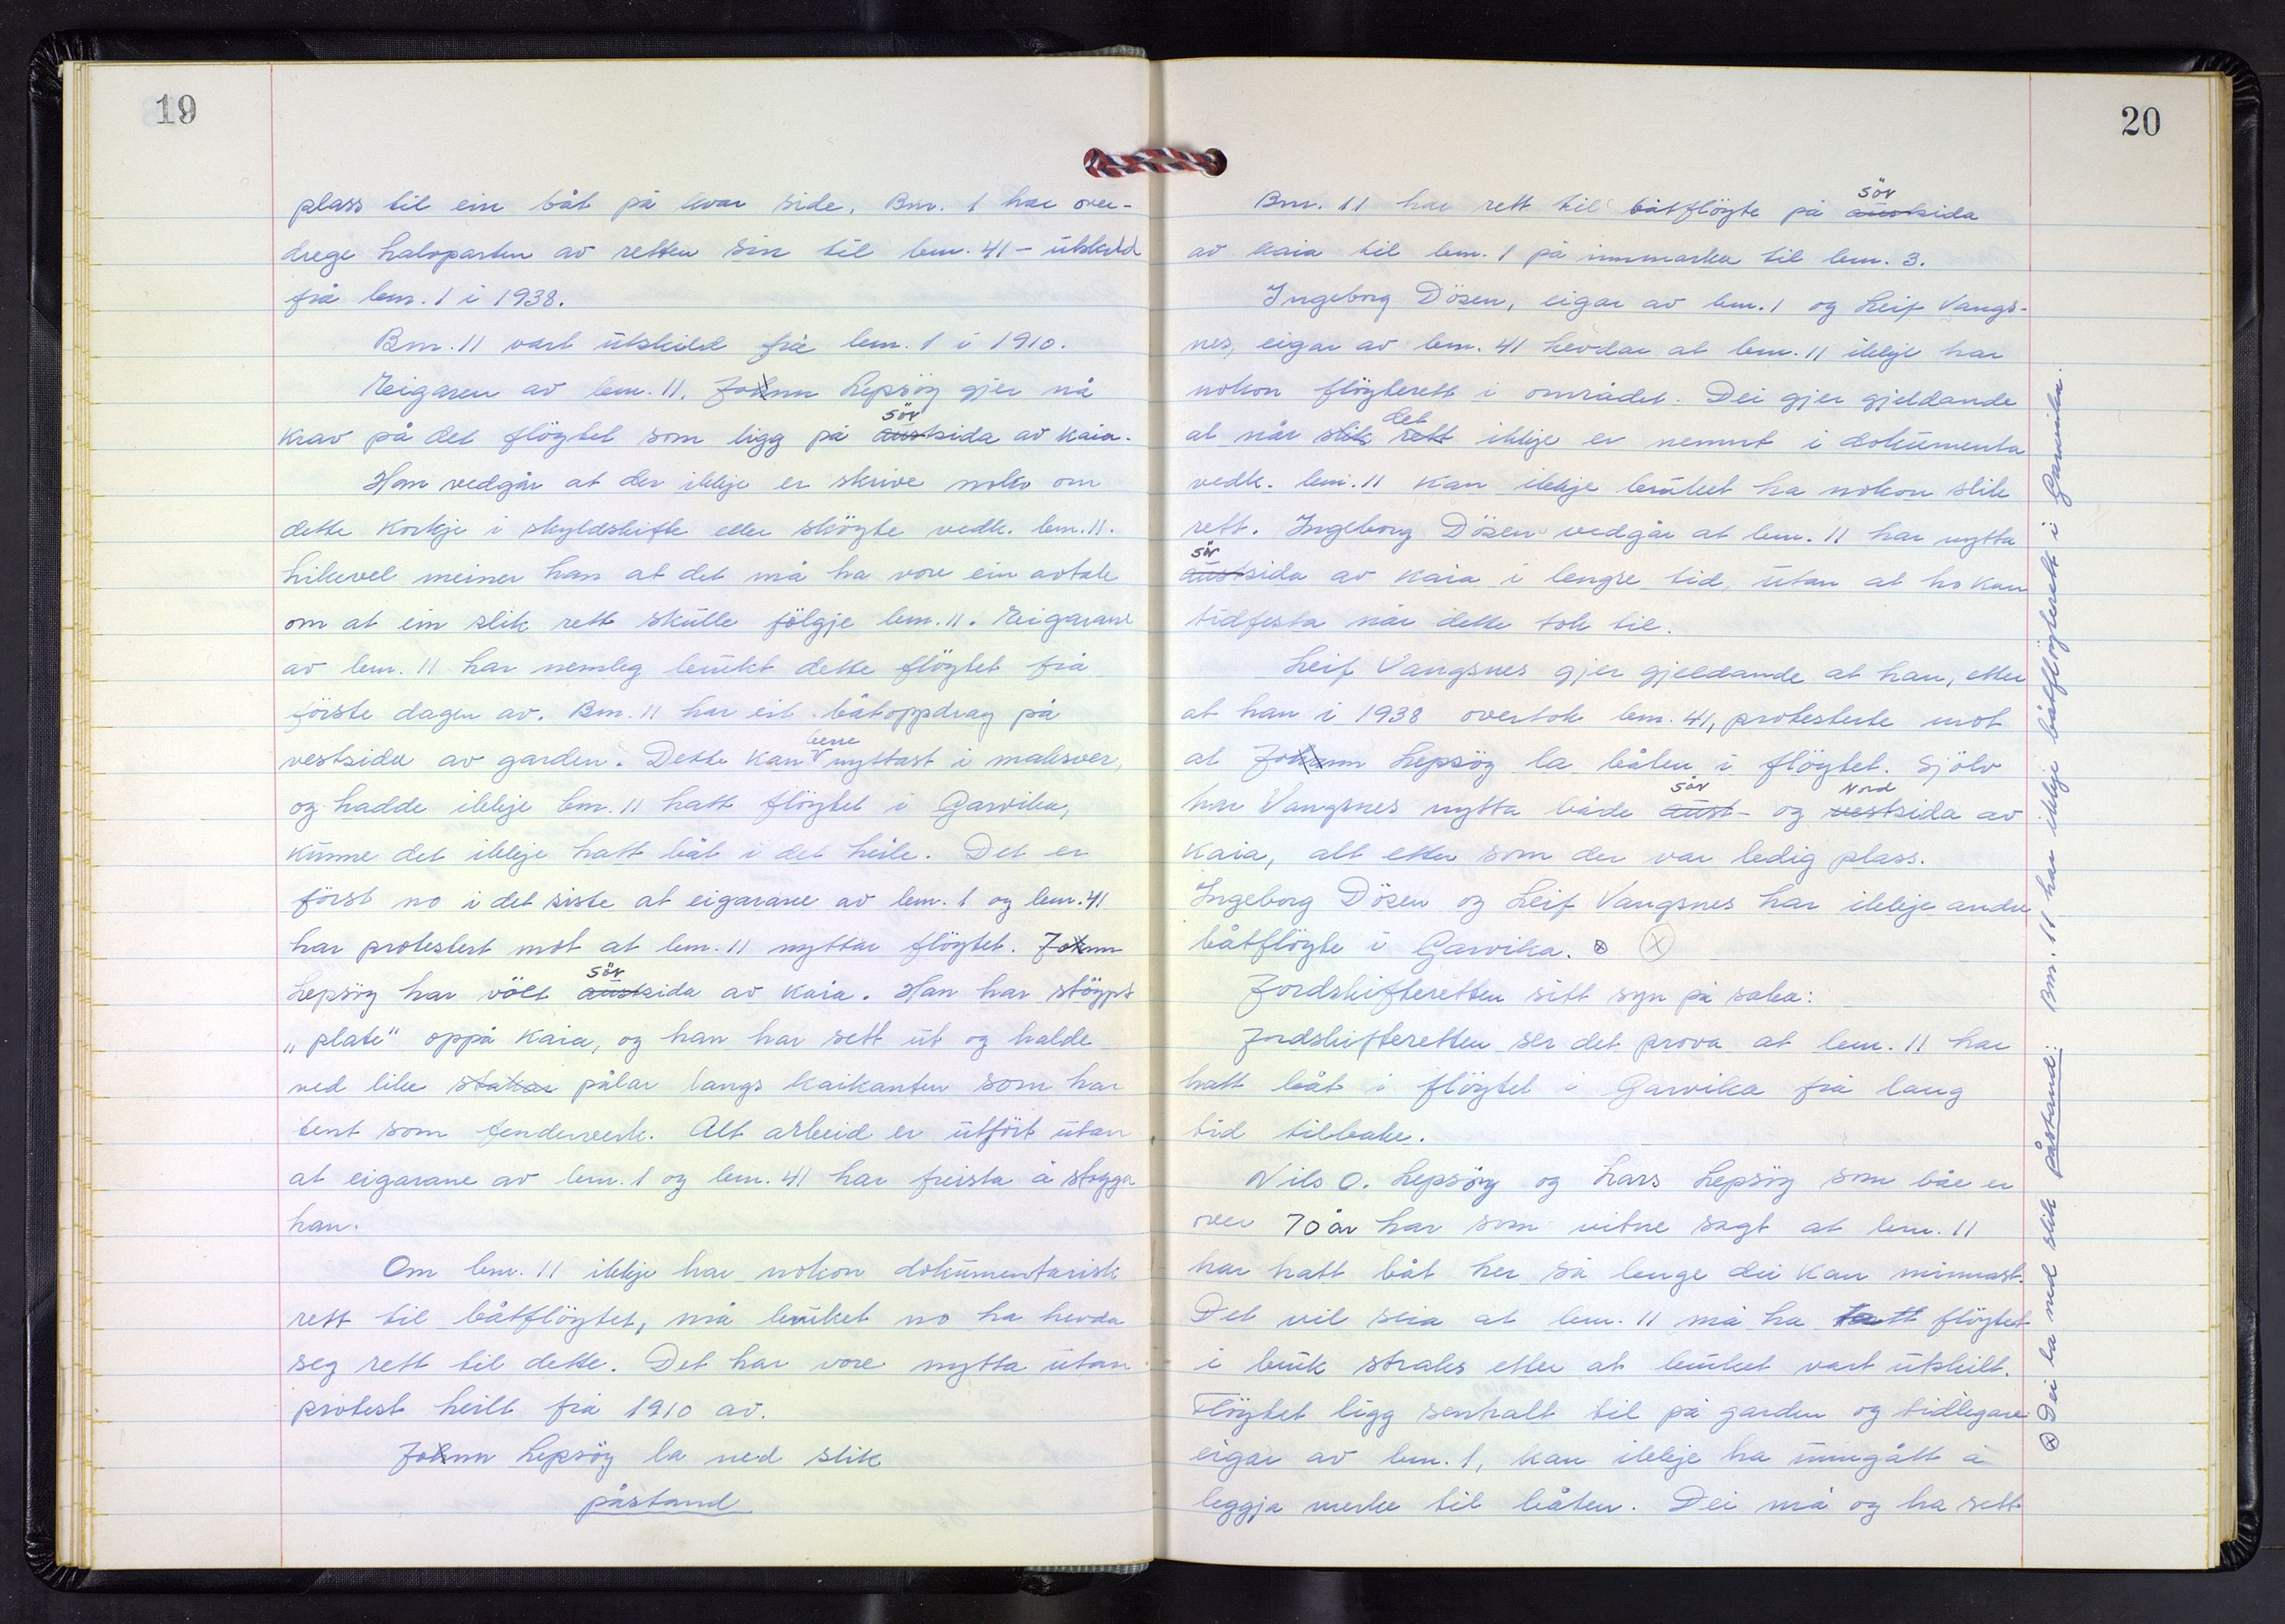 19
plass til ein båt på kvar side. Bnr. 1 har over-
drege halvparten av retten sin til bnr. 41 - utskild
frå bnr. 1 i 1938.
Bnr. 11 vart utskild frå bnr. 1 i 1910.
Eigaren av bnr. 11. Johnn Lepsöy gjer nå
sör
krav på det flöytet som ligg på austsida av kaia.
Han vedgår at der ikkje er skrive noko om
dette korkje i skyldskifte eller sköyte vedk. bnr. 11.
Likevel meiner han at det må ha vore ein avtale
om at ein slik rett skulle fölgje bnr. 11. Eigarane
av bnr. 11 har nemleg brukt dette flöytet frå
förste dagen av. Bnr. 11 har eit båtoppdrag på
berre
vestsida av garden. Dette kan V nyttast i maksver,
og hadde ikkje bnr. 11 hatt flöytet i Garvika,
kunne det ikkje hatt båt i det heile. Det er
först no i det siste at eigarane av bnr. 1 og bnr. 41
har protestert mot at bnr. 11 nyttar flöytet. Johnn
sör
Lepsöy har völt austsida av kaia. Han har stöypt
„plate" oppå kaia, og han har sett ut og halde
ved like stakar pålar langs kaikanten som har
tent som fenderverk. Alt arbeid er utfört utan
at eigarane av bnr. 1 og bnr. 41 har freista å stogga
han.
Om bnr. 11 ikkje har nokon dokumentarisk
rett til båtflöytet, må bruket no ha hevda
seg rett til dette. Det har vore nytta utan
protest heilt frå 1910 av.
Johnn Lepsöy la ned slik
påstand
20
sör
Bnr. 11 har rett til båtflöyte på austsida
av kaia til bnr. 1 på innmarka til bnr. 3.
Ingeborg Dösen, eigar av bnr. 1 og Leif Vangs-
nes, eigar av bnr. 41 hevdar at bnr. 11 ikkje har
nokon flöyterett i området. Dei gjer gjeldande
det
at når slik rett ikkje er nemnt i dokumenta
vedk. bnr. 11 kan ikkje bruket ha nokon slik
rett. Ingeborg Dösen vedgår at bnr. 11 har nytta
sör
austsida av kaia i lengre tid, utan at ho kan
tidfesta når dette tok til.
Leif Vangsnes gjer gjeldande at han, etter
at han i 1938 overtok bnr. 41, protesterte mot
at Johann Lepsöy la båten i flöytet. Sjölv
sör nord
har Vangsnes nytta både aust- og vestsida av
kaia, alt etter som der var ledig plass.
Ingeborg Dösen og Leif Vangsnes har ikkje andre
båtflöyte i Garvika. ⊗ ⊗
Jordskifteretten sitt syn på saka:
Jordskifteretten ser det prova at bnr. 11 har
hatt båt i flöytet i Garvika frå lang
tid tilbake.
Nils O. Lepsöy og Lars Lepsöy som båe er
over 70 år har som vitne sagt at bnr. 11
har hatt båt her så lenge dei kan minnast.
Det vil seia at bnr. 11 må ha tatt flöytet
i bruk straks etter at bruket vart utskilt.
Flöytet ligg sentralt til på garden og tidlegare
eigar av bnr. 1, kan ikkje ha unngått å
leggja merke til båten. Dei må og ha sett
⊗ Dei la ned slik påstand: Bnr. 11 har ikkje båtflöyterett i Garvika.